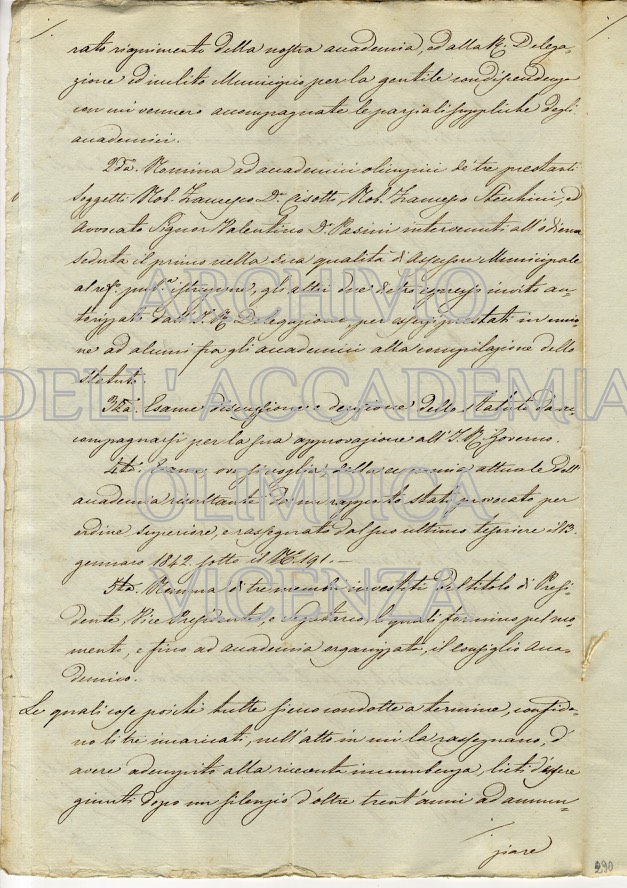 rato rignimento della nostra accademia, ed alla R. Delega-
zione ed inclito Municipio per la gentile condiscendenza
con cui vennero accompagnate le parziali suppliche degli
accademici.
2da. Nomina ad accademici olimpici de' tre prestanti
soggetti Nob. Francesco Dr. Bisotti, Nob. Francesco Stecchini, ed
Avvocato Signor Valentino Dr. Pasini intervenuti all'odierna
seduta il primo nella sua qualità d'Assessore Municipale
al ref.° pub.ª istruzione, gli altri due dietro espresso invito au-
torizzato dall'I. R. Delegazione, per essersi prestati in unio-
ne ad alcuni fra gli accademici alla compilazione dello
Statuto.
3za. Esame discussione e decisione dello statuto da ac-
compagnarsi per la sua approvazione all'I. R. Governo.
4ta. Esame ove si voglia della economia attuale dell'
accademia risultante da un rapporto stato provocato per
ordine superiore, e rassegnato dal suo ultimo tesoriere il 13
gennaro 1842 sotto il N.° 191. —
5ta. Nomina di tre membri investiti del titolo di Presi-
dente, Vice Presidente, e Segretario, i quali formino pel mo-
mento, e fino ad accademia organizzata, il consiglio acca-
demico.
Le quali cose poichè tutte sieno condotte a termine, confida-
no li tre incaricati, nell'atto in cui la rassegnano, d'
avere adempito alla ricevuta incumbenza, lieti d'essere
giunti dopo un silenzio d'oltre trent'anni ad annun-
ziare
290
ARCHIVIO
DELL'ACCADEMIA
OLIMPICA
VICENZA